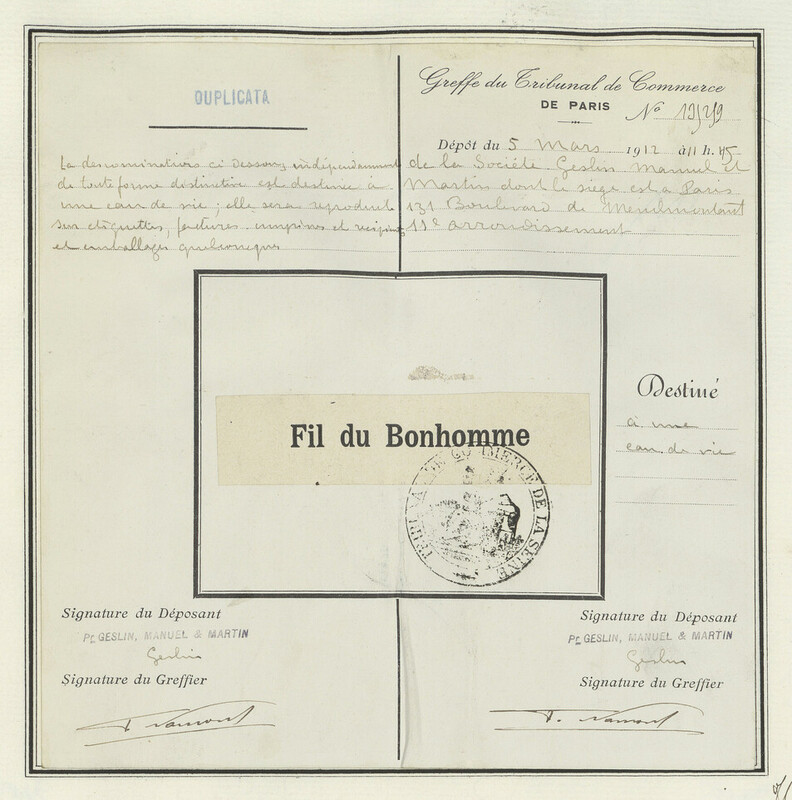 DUPLICATA
La denomination ci dessous indépendamment
de toute forme distinctive est destinée à
une eau de vie ; elle sera reproduite
sur etiquettes, factures imprimés et recipients
et emballages quelconques
Greffe du Tribunal de Commerce
DE PARIS
No
Dépôt du 5 Mars 1912 à 11 h. 45
de la Société Geslin Manuel et
Martin dont le siege est a Paris
131 Boulevard de Menilmontant
11e arrondissement
Fil du Bonhomme
TRIBUNAL DE COMMERCE DE LA SEINE
Destiné
à une
eau de vie
Signature du Déposant
Pr GESLIN, MANUEL & MARTIN
Geslin
Signature du Greffier
Signature du Déposant
Pr GESLIN, MANUEL & MARTIN
Geslin
Signature du Greffier